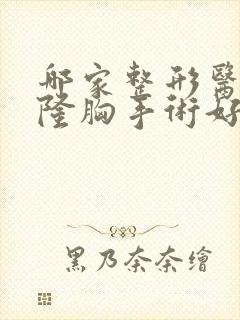 哪家整形醫
隆胸手術好
黑乃奈奈繪